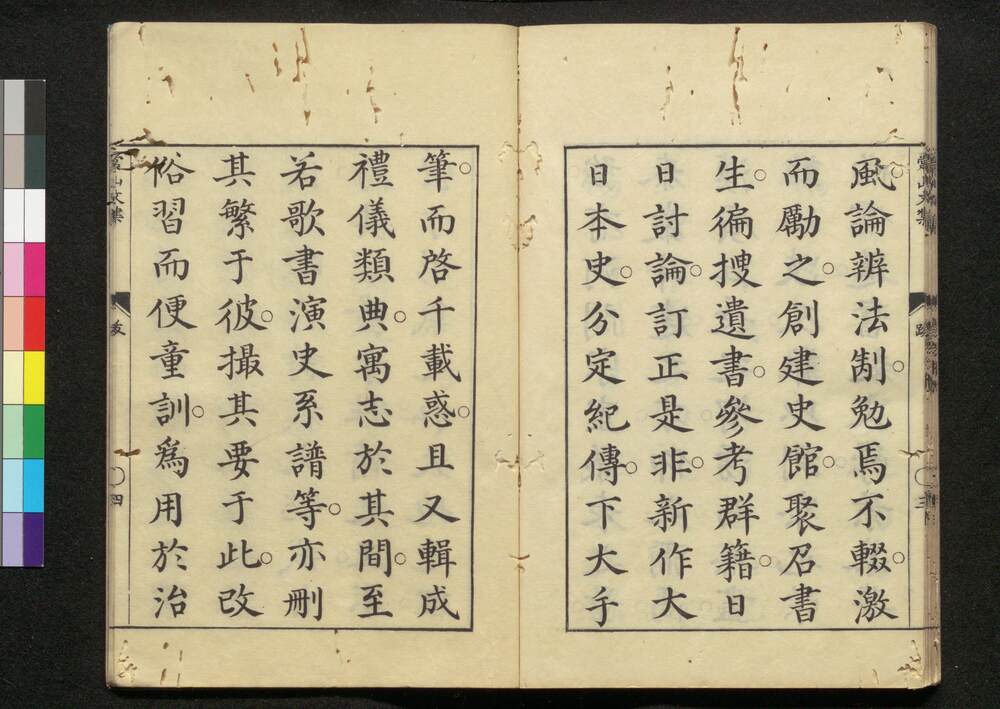 風。論辨法制。勉焉不輟。激
而勵之。創建史館。聚召書
生。徧搜遺書。參考群籍。日
日討論。訂正是非。新作大
日本史。分定紀傳。下大手
筆。而啓千載惑。且又輯成
禮儀類典。寓志於其間。至
若歌書演史系譜等。亦刪
其繁于彼。撮其要于此。改
俗習而便童訓。爲用於治
常山文集
跋
三
常山文集
跋
四